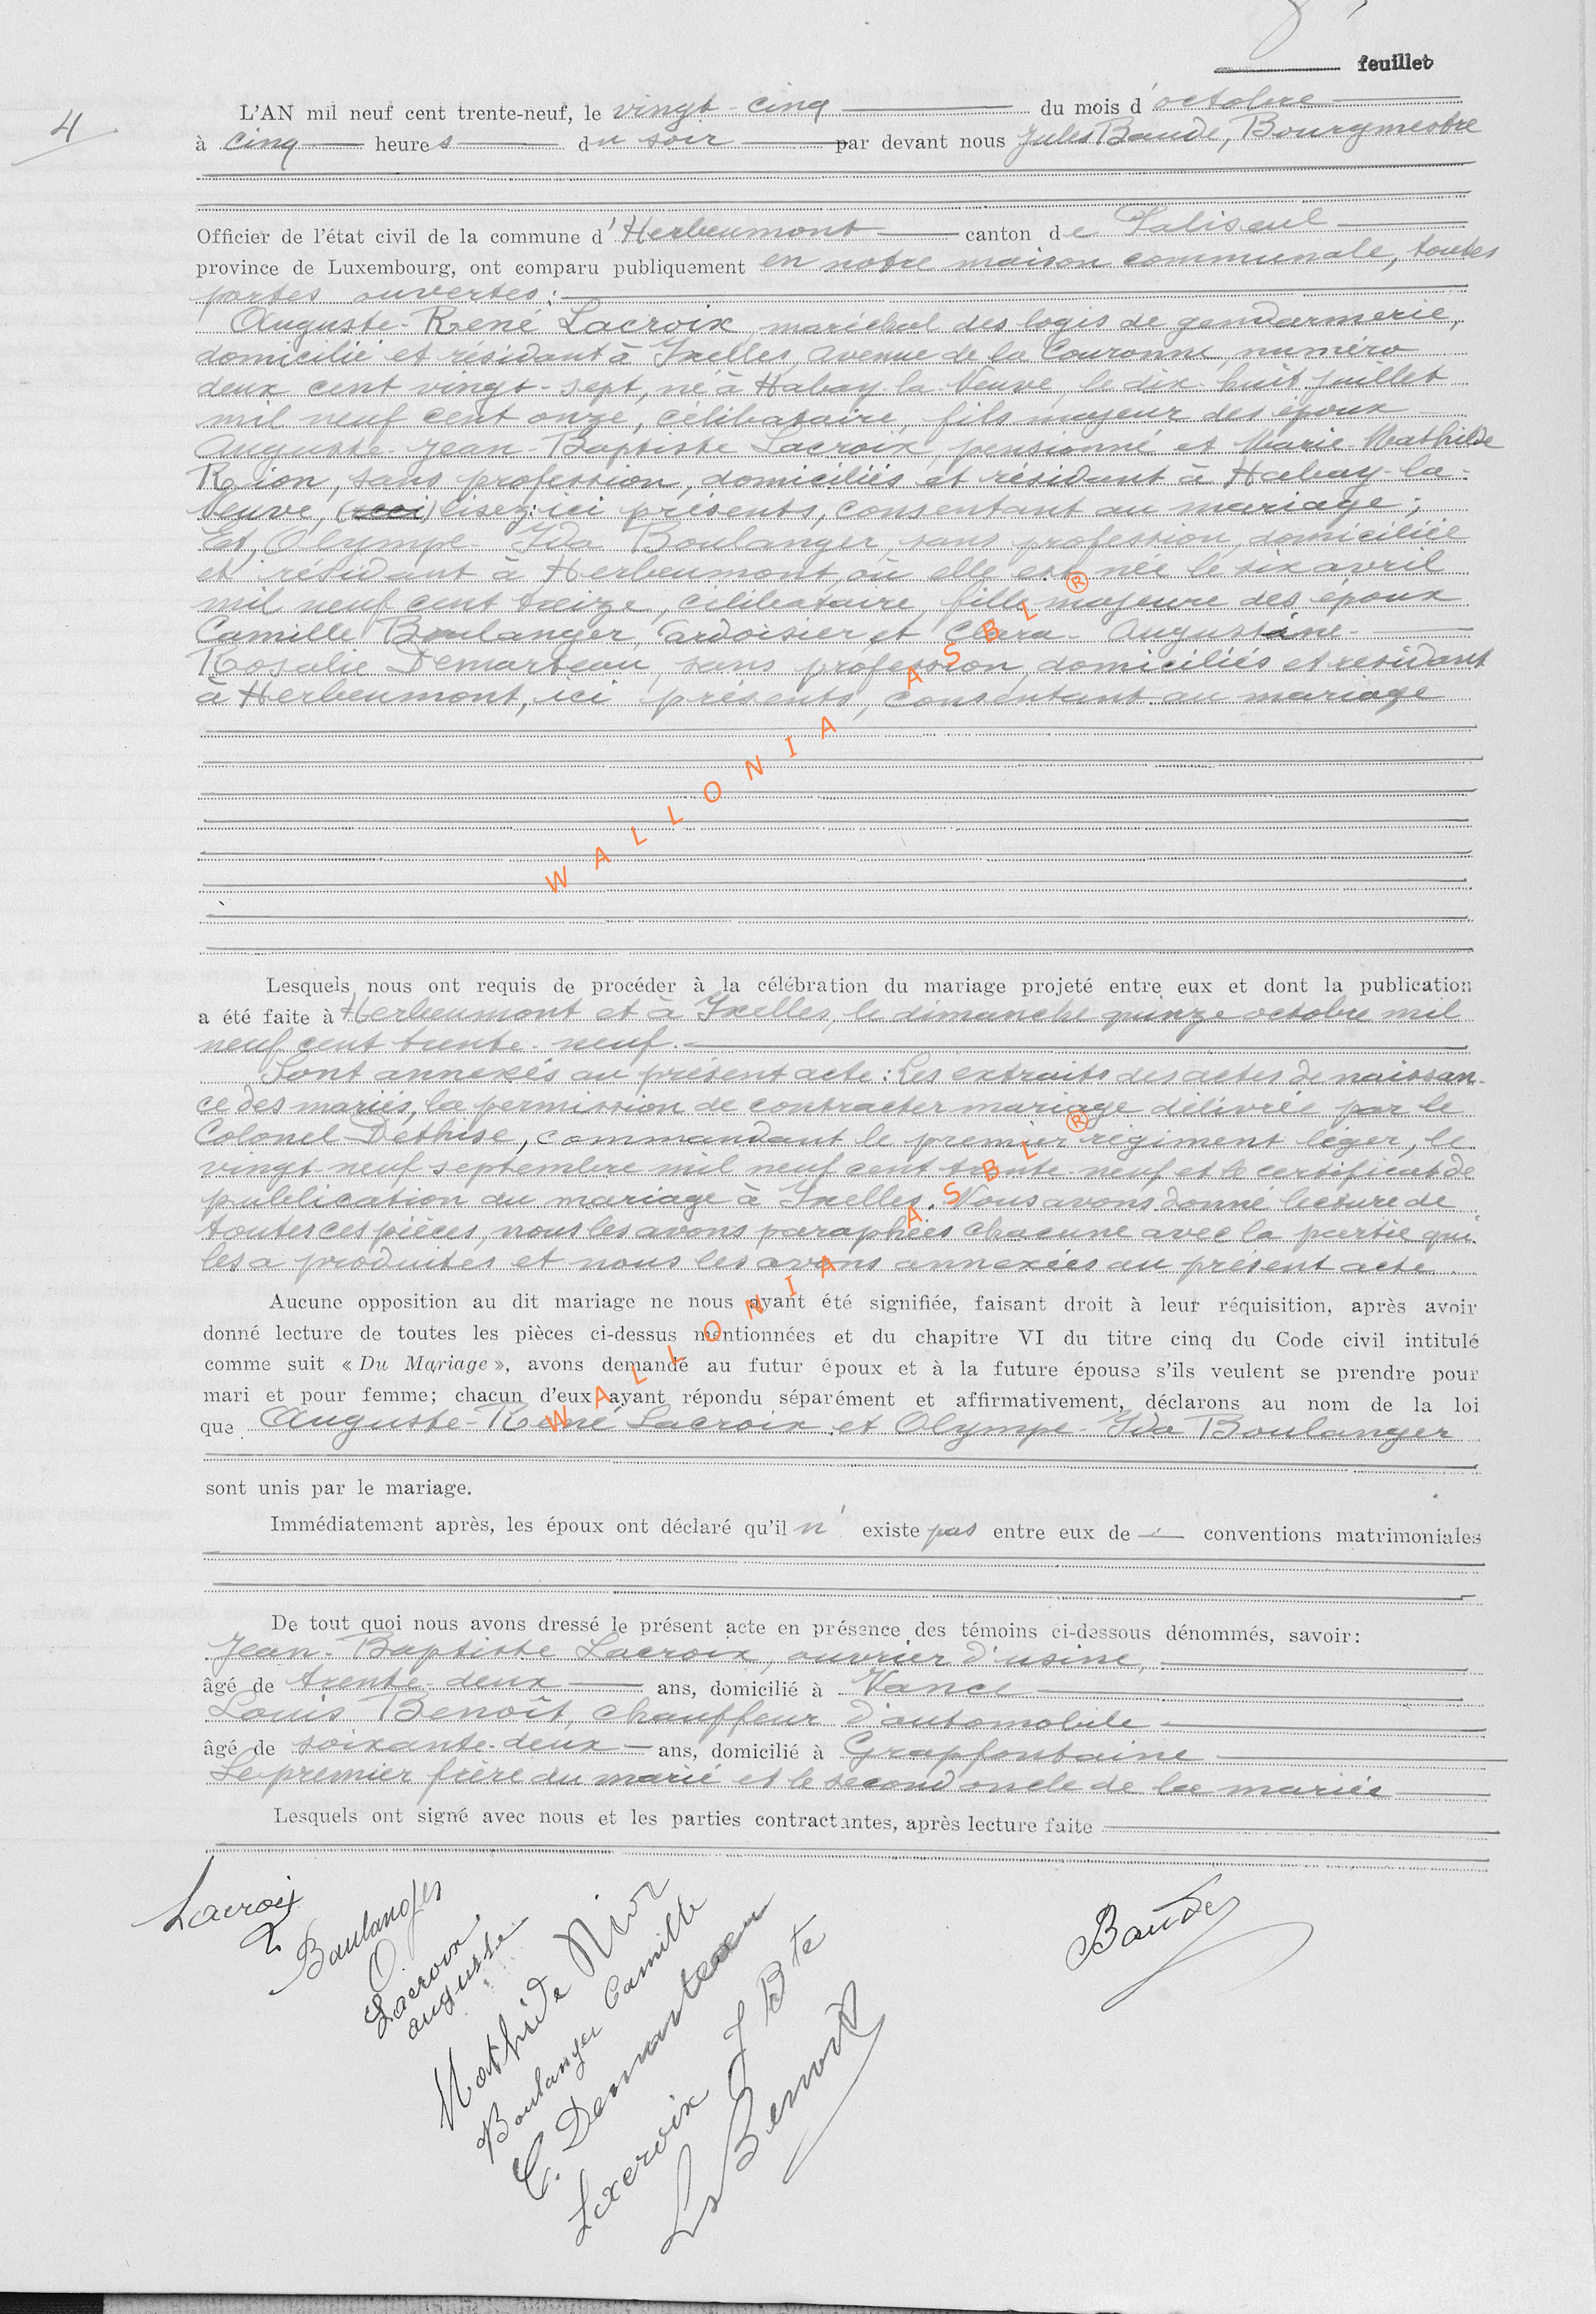 feuillet
4
L'AN mil neuf cent trente-neuf, le vingt-cinq du mois d'octobre
à cinq heures du soir par devant nous Jules Baude, Bourgmestre
Officier de l'état civil de la commune d'Herbeumont canton de Paliseul
province de Luxembourg, ont comparu publiquement en notre maison communale, toutes
portes ouvertes:
Auguste-René Lacroix maréchal des logis de gendarmerie,
domicilié et résidant à Ixelles, avenue de la Couronne, numéro
deux cent vingt-sept, né à Habay-la-Neuve, le dix-huit juillet
mil neuf cent onze, célibataire, fils majeur des époux
Auguste-Jean-Baptiste Lacroix, pensionné et Marie-Mathilde
Rion, sans profession, domiciliés et résidant à Habay-la-
Neuve, lisez: ici présents, consentant au mariage;
Et, Olympe-Ida Boulanger, sans profession, domiciliée
et résidant à Herbeumont, où elle est née le six avril
mil neuf cent treize, célibataire, fille majeure des époux
Camille Boulanger, ardoisier, et Clara-Augustine-
Rosalie Demarteau, sans profession, domiciliés et résidant
à Herbeumont, ici présents, consentant au mariage
Lesquels nous ont requis de procéder à la célébration du mariage projeté entre eux et dont la publication
a été faite à Herbeumont et à Ixelles, le dimanche quinze octobre mil
neuf cent trente-neuf.
Sont annexés au présent acte: Les extraits des actes de naissan-
ce des mariés, la permission de contracter mariage délivrée par le
Colonel Dethise, commandant le premier régiment léger, le
vingt-neuf septembre mil neuf cent trente-neuf et le certificat de
publication du mariage à Ixelles. Nous avons donné lecture de
toutes ces pièces, nous les avons paraphées chacune avec la partie qui
les a produites et nous les avons annexées au présent acte.
Aucune opposition au dit mariage ne nous ayant été signifiée, faisant droit à leur réquisition, après avoir
donné lecture de toutes les pièces ci-dessus mentionnées et du chapitre VI du titre cinq du Code civil intitulé
comme suit « Du Mariage », avons demandé au futur époux et à la future épouse s'ils veulent se prendre pour
mari et pour femme; chacun d'eux ayant répondu séparément et affirmativement, déclarons au nom de la loi
que Auguste-René Lacroix et Olympe-Ida Boulanger
sont unis par le mariage.
Immédiatement après, les époux ont déclaré qu'il n'existe pas entre eux de conventions matrimoniales
De tout quoi nous avons dressé le présent acte en présence des témoins ci-dessous dénommés, savoir:
Jean-Baptiste Lacroix, ouvrier d'usine,
âgé de trente-deux ans, domicilié à Vance
Louis Benoît, chauffeur d'automobile
âgé de soixante-deux ans, domicilié à Grapfontaine
Le premier frère du marié et le second oncle de la mariée
Lesquels ont signé avec nous et les parties contractantes, après lecture faite
Lacroix
Boulanger
O.
Lacroix
auguste
Mathilde
Boulanger Camille
C. Demarteau
Lacroix J Bte
L Benoit
Baude
WALLONIA ASBL ®
WALLONIA ASBL ®